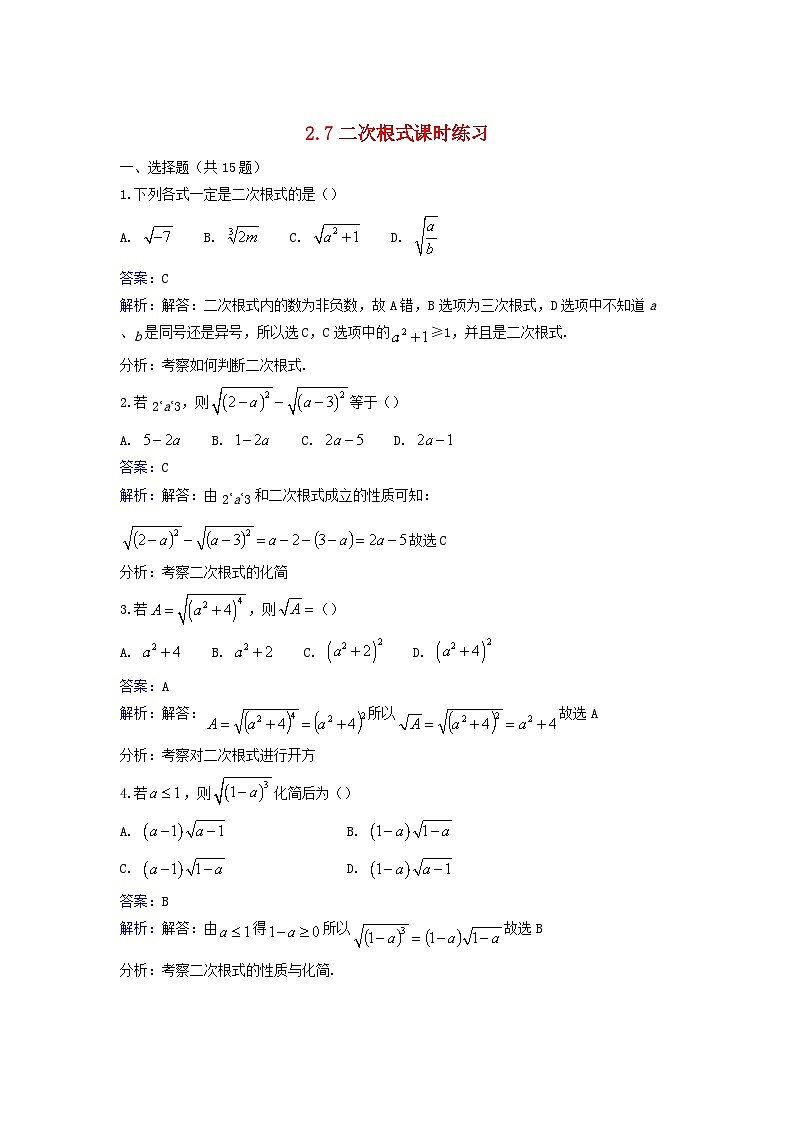 2.7 二次根式课时练习
一、选择题（共 15 题）
1.下列各式一定是二次根式的是（）
A. √(−7) B. ∛(2m) C. √(a²+1) D. √(a/b)
答案：C
解析：解答：二次根式内的数为非负数，故 A 错，B 选项为三次根式，D 选项中不知道 a
、b 是同号还是异号，所以选 C，C 选项中的 a²+1 ≥1，并且是二次根式．
分析：考察如何判断二次根式．
2.若 2‹a‹3，则 √((2−a)²) − √((a−3)²) 等于（）
A. 5−2a B. 1−2a C. 2a−5 D. 2a−1
答案：C
解析：解答：由 2‹a‹3 和二次根式成立的性质可知：
√((2−a)²) − √((a−3)²) = a−2−(3−a) = 2a−5 故选 C
分析：考察二次根式的化简
3.若 A = √((a²+4)⁴)，则 √A = （）
A. a²+4 B. a²+2 C. (a²+2)² D. (a²+4)²
答案：A
解析：解答： A = √((a²+4)⁴) = (a²+4)² 所以 √A = √((a²+4)²) = a²+4 故选 A
分析：考察对二次根式进行开方
4.若 a ≤ 1，则 √((1−a)³) 化简后为（）
A. (a−1)√(a−1) B. (1−a)√(1−a)
C. (a−1)√(1−a) D. (1−a)√(a−1)
答案：B
解析：解答：由 a ≤ 1 得 1−a ≥ 0 所以 √((1−a)³) = (1−a)√(1−a) 故选 B
分析：考察二次根式的性质与化简．